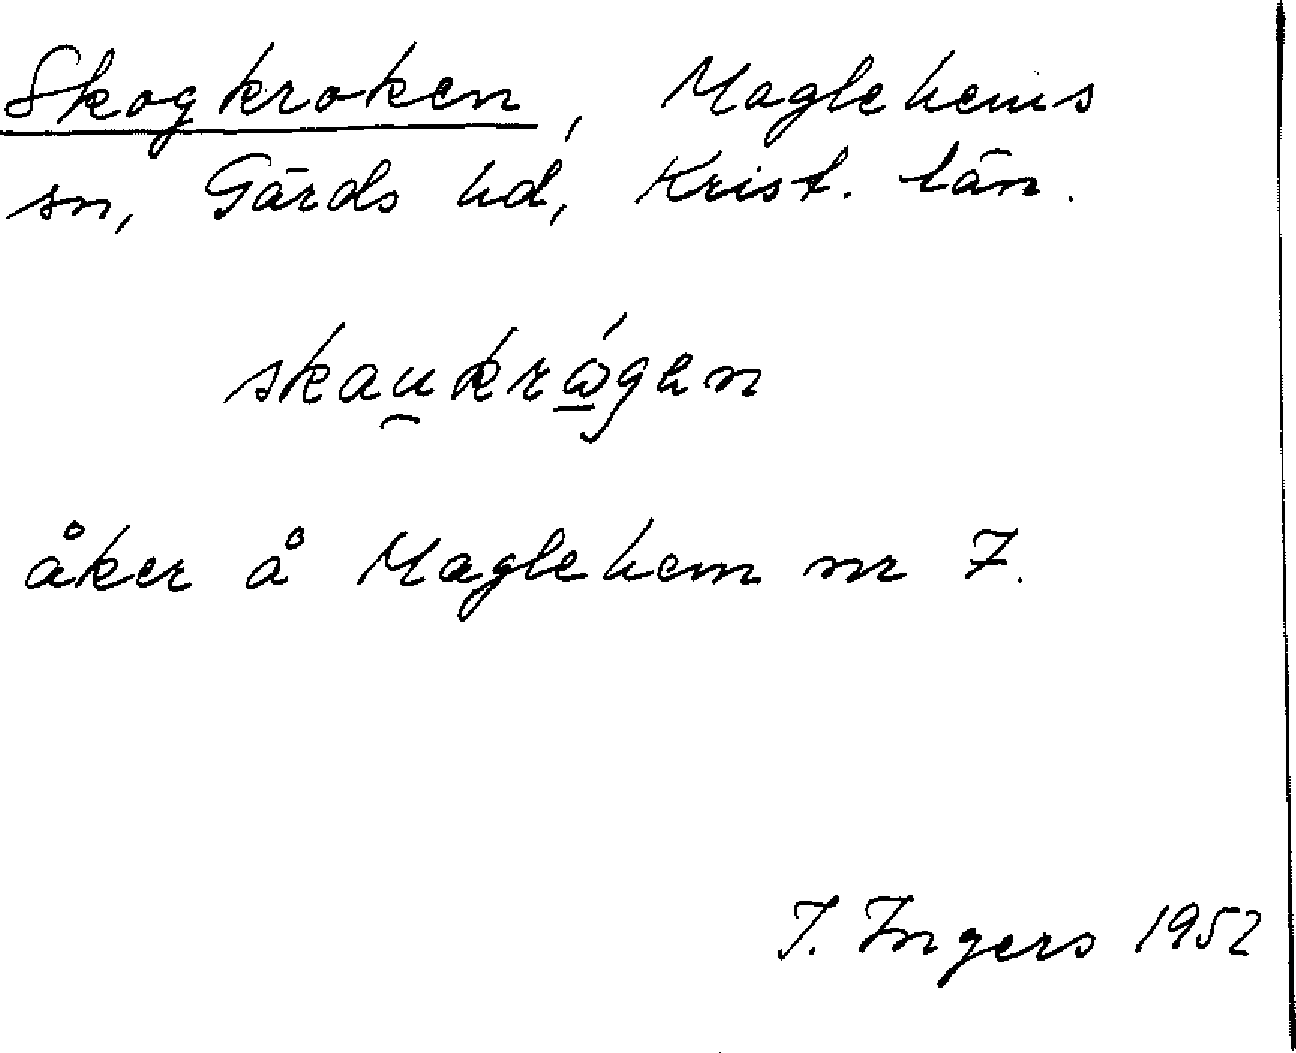 Skogkroken, Maglehems
sn, Gärds hd, Krist. län.
skau̯krώ̲gən
åker å Maglehem nr 7.
I. Ingers 1952